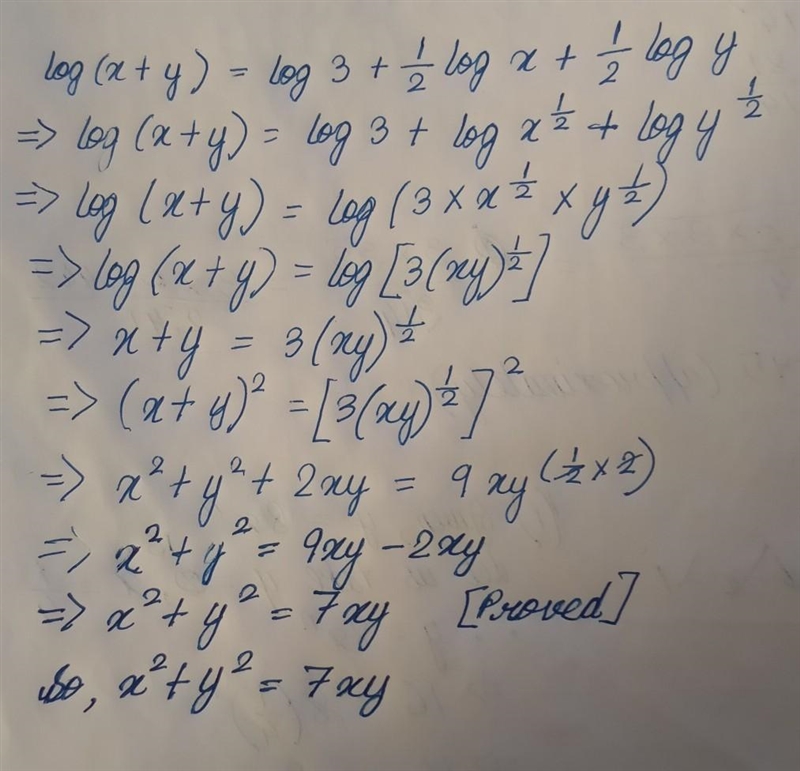 log(x+y) = log 3 + 1/2 log x + 1/2 log y
=> log(x+y) = log 3 + log x^1/2 + log y^1/2
=> log(x+y) = log(3 × x^1/2 × y^1/2)
=> log(x+y) = log[3(xy)^1/2]
=> x+y = 3(xy)^1/2
=> (x+y)² = [3(xy)^1/2]²
=> x² + y² + 2xy = 9xy^(1/2 × 2)
=> x² + y² = 9xy - 2xy
=> x² + y² = 7xy [Proved]
So, x² + y² = 7xy